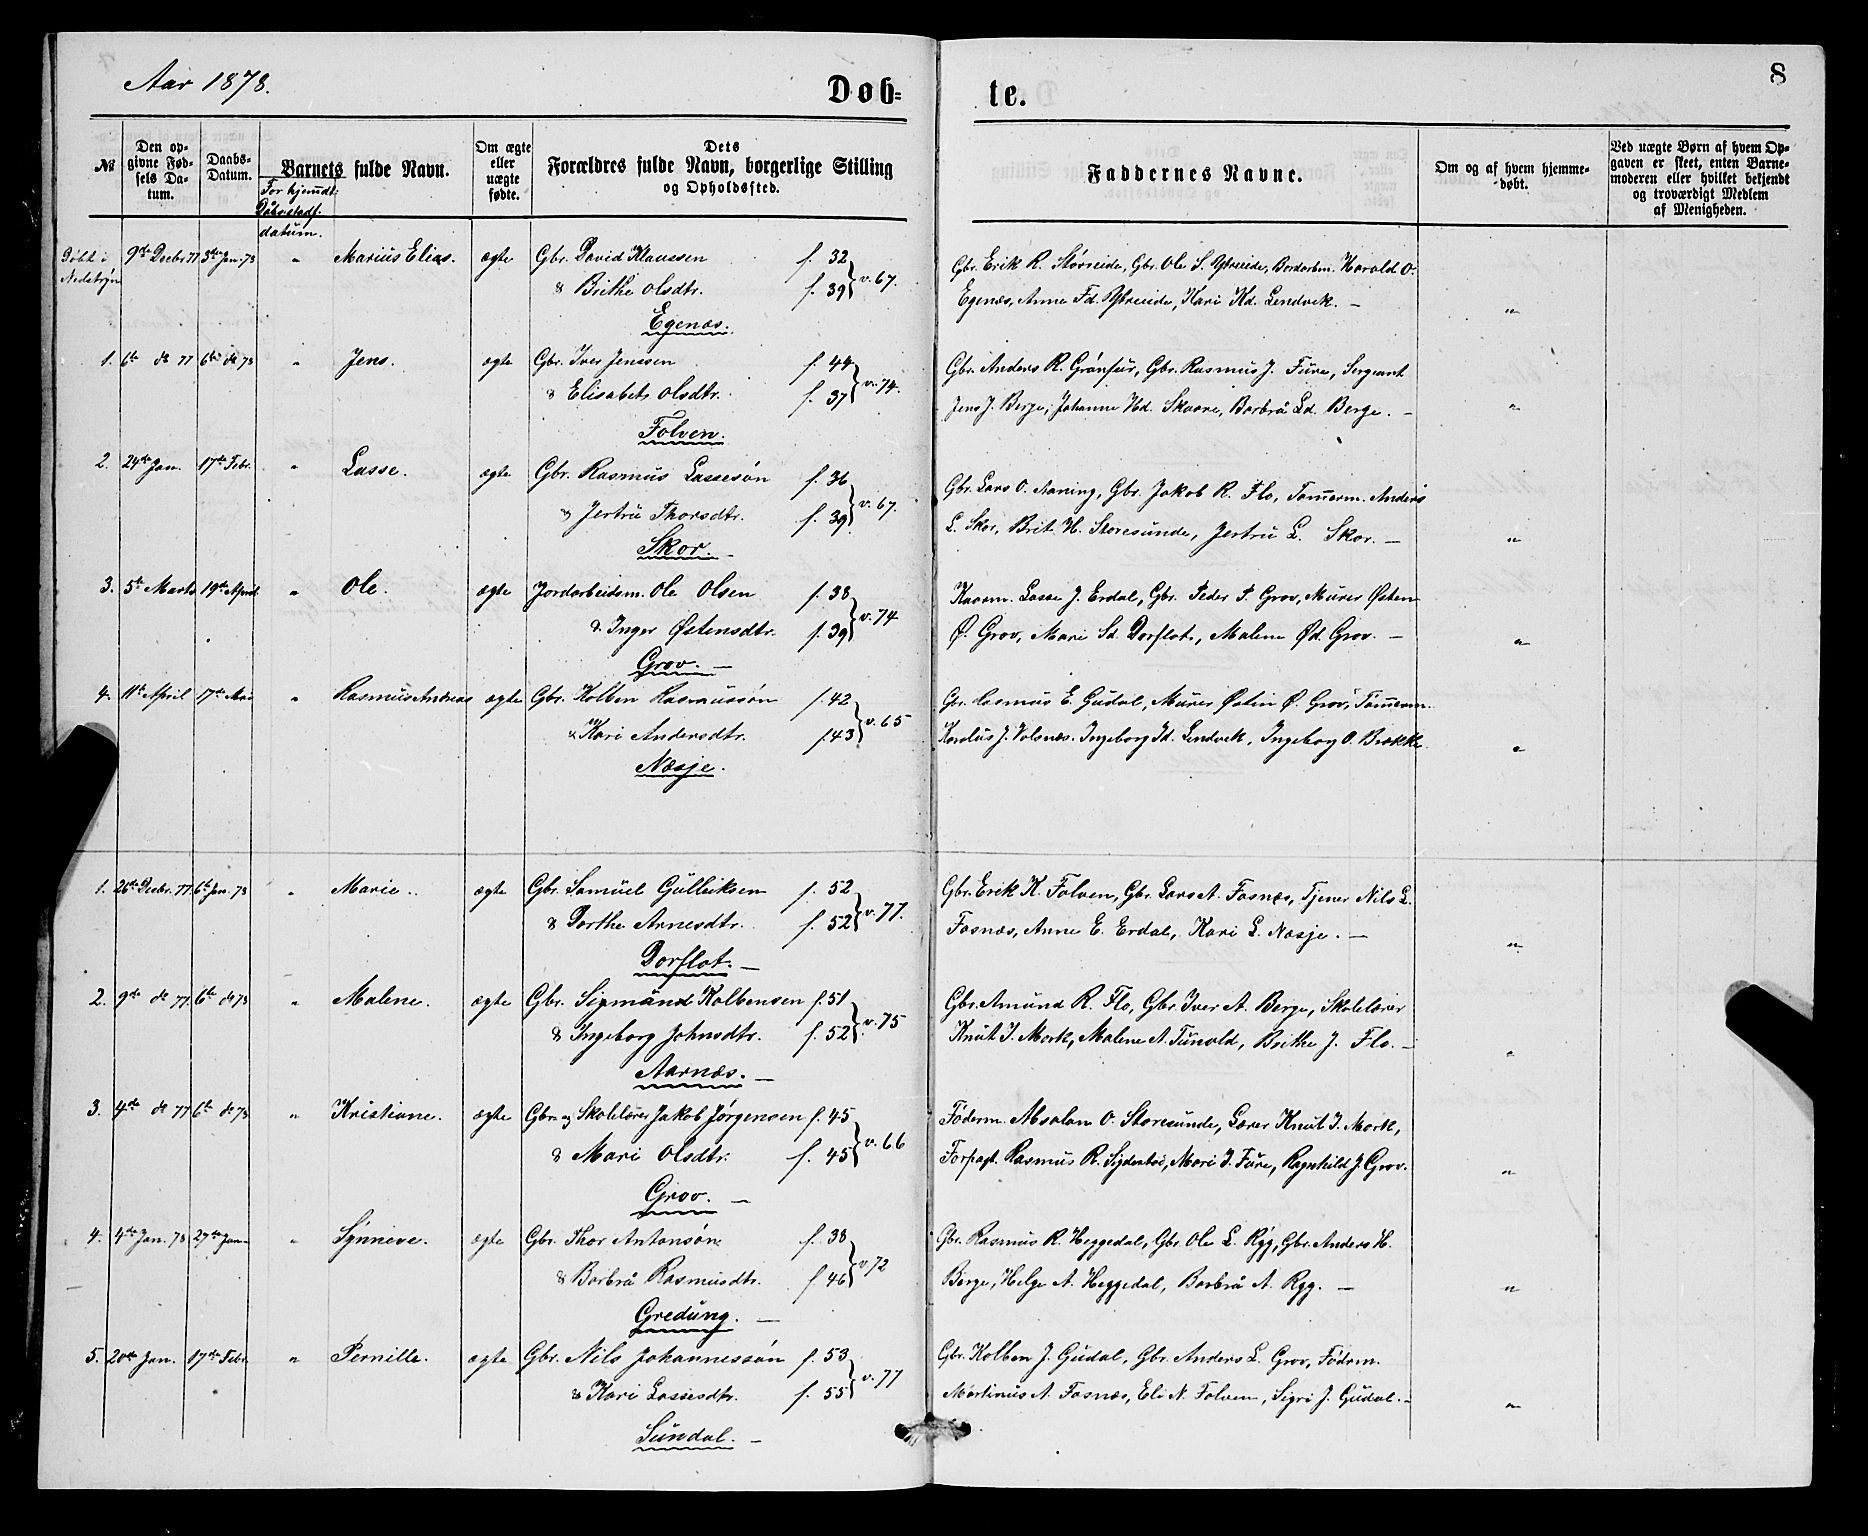 Aar 1878.
Døb=
te.
8
No
Den op-
givne Fød-
sels Da-
tum.
Daabs-
Datum.
Barnets fulde Navn.
For hjemdt:
Daabsstadf.
datum.
Om ægte
eller
uægte
fødte.
Dets
Forældres fulde Navn, borgerlige Stilling
og Opholdssted.
Faddernes Navne.
Om og af hvem hjemme-
døbt.
Ved uægte Børn af hvem Op-
gaven er skeet, enten Barne-
moderen eller hvilket bekjendt
og troværdigt Medlem
af Menigheden.
Døbt i 9de Decbr 77 3die Jan. 78 " Marius Elias. ægte Gbr. David Klaussen f. 32
Nedstryn & Brithe Olsdtr. f. 39 v. 67.
Egenæs.
Gbr. Erik R. Störreide, Gbr. Ole S. Ytreeide, Bordarbm. Harald O.
Egenæs, Anne Fd. Ytreeide, Kari Kd. Lendvik. — "
1. 6te do 77 6te do 78 " Jens. ægte Gbr. Iver Jenssen f. 44
& Elisabet Olsdtr. f. 37 v. 74.
Folven.
Gbr. Anders R. Grönfur, Gbr. Rasmus J. Fure, Sergeant
Jens J. Berge, Johanne Hd. Skaare, Barbrü Ld. Berge. — "
2. 24de Jan. 17de Febr. " Lasse. ægte Gbr. Rasmus Lassesön f. 36
& Jertrü Thorsdtr. f. 39 v. 67.
Skor. —
Gbr. Lars O. Aaning, Gbr. Jakob R. Flo, Tømerm. Anders
L. Skor, Brit H. Storesunde, Jertrü L. Skor. — "
3. 5te Marts 19de April " Ole. ægte Jordarbeidsm. Ole Olsen f. 38
& Inger Østensdtr. f. 39 v. 74
Grov. —
Kaarm. Lasse J. Erdal, Gbr. Peder P. Grov, Murer Østen
Ø. Grov, Mari Sd. Dorflot, Malene Ød. Grov. — "
4. 11te April 17de Mai " Rasmus Andreas ægte Gbr. Kolben Rasmussön f. 42
& Kari Andersdtr. f. 43 v. 65
Næsje.
Gbr. Rasmus E. Gudal, Murer Østen Ø. Grov, Tømerm.
J. Volsnæs. Ingeborg Id. Lendvik, Ingeborg O. Brække "
1. 26de Decbr. 77 6te Jan. 78 " Marie. ægte Gbr. Samüel Gülleiksen f. 52
& Dorthe Arnesdtr. f. 52 v. 77.
Dorflot. —
Gbr. Erik K. Folven, Gbr. Lars A. Fosnæs, Tjener Nils L.
Fosnæs, Anne E. Erdal, Kari L. Næsje. — "
2. 9de do 77 6te do 78 " Malene. ægte Gbr. Sigmünd Kolbensen f. 51
& Ingeborg Johnsdtr. f. 52 v. 75
Aarnæs. —
Gbr. Amünd R. Flo, Gbr. Iver A. Berge, Skolelærer
Knüt I. Mork, Malene A. Tunold, Brithe J. Flo. — "
3. 4de do 77 6te do 78 " Kristiane. ægte Gbr. og Skolelærer Jakob Jørgensen f. 45
& Mari Olsdtr. f. 45 v. 66
Grov. —
Föderm. Absalon O. Storesunde, Lærer Knüt I. Mork,
Forpagt. Rasmus R., Mari I. Füre, Ragnhild J. Grov. "
4. 4de Jan. 78 27de Jan. " Synneve. ægte Gbr. Thor Antonsön f. 38
& Barbrü Rasmusdtr. f. 46 v. 72
Gredüng. —
Gbr. Rasmus R. Heggedal, Gbr. Ole L. Ryg, Gbr. Anders H.
Berge, Helge A. Heggedal, Barbrü A. Ryg. — "
5. 20de Jan. 17de Febr. " Pernille. ægte Gbr. Nils Johannessön f. 53
& Kari Lassesdtr. f. 55 v. 77
Sündal. —
Gbr. Kolben J. Güdal, Gbr. Anders L. Grov, Födrm.
Martinus A. Fosnæs, Eli N. Folven, Sigri J. Güdal. — "